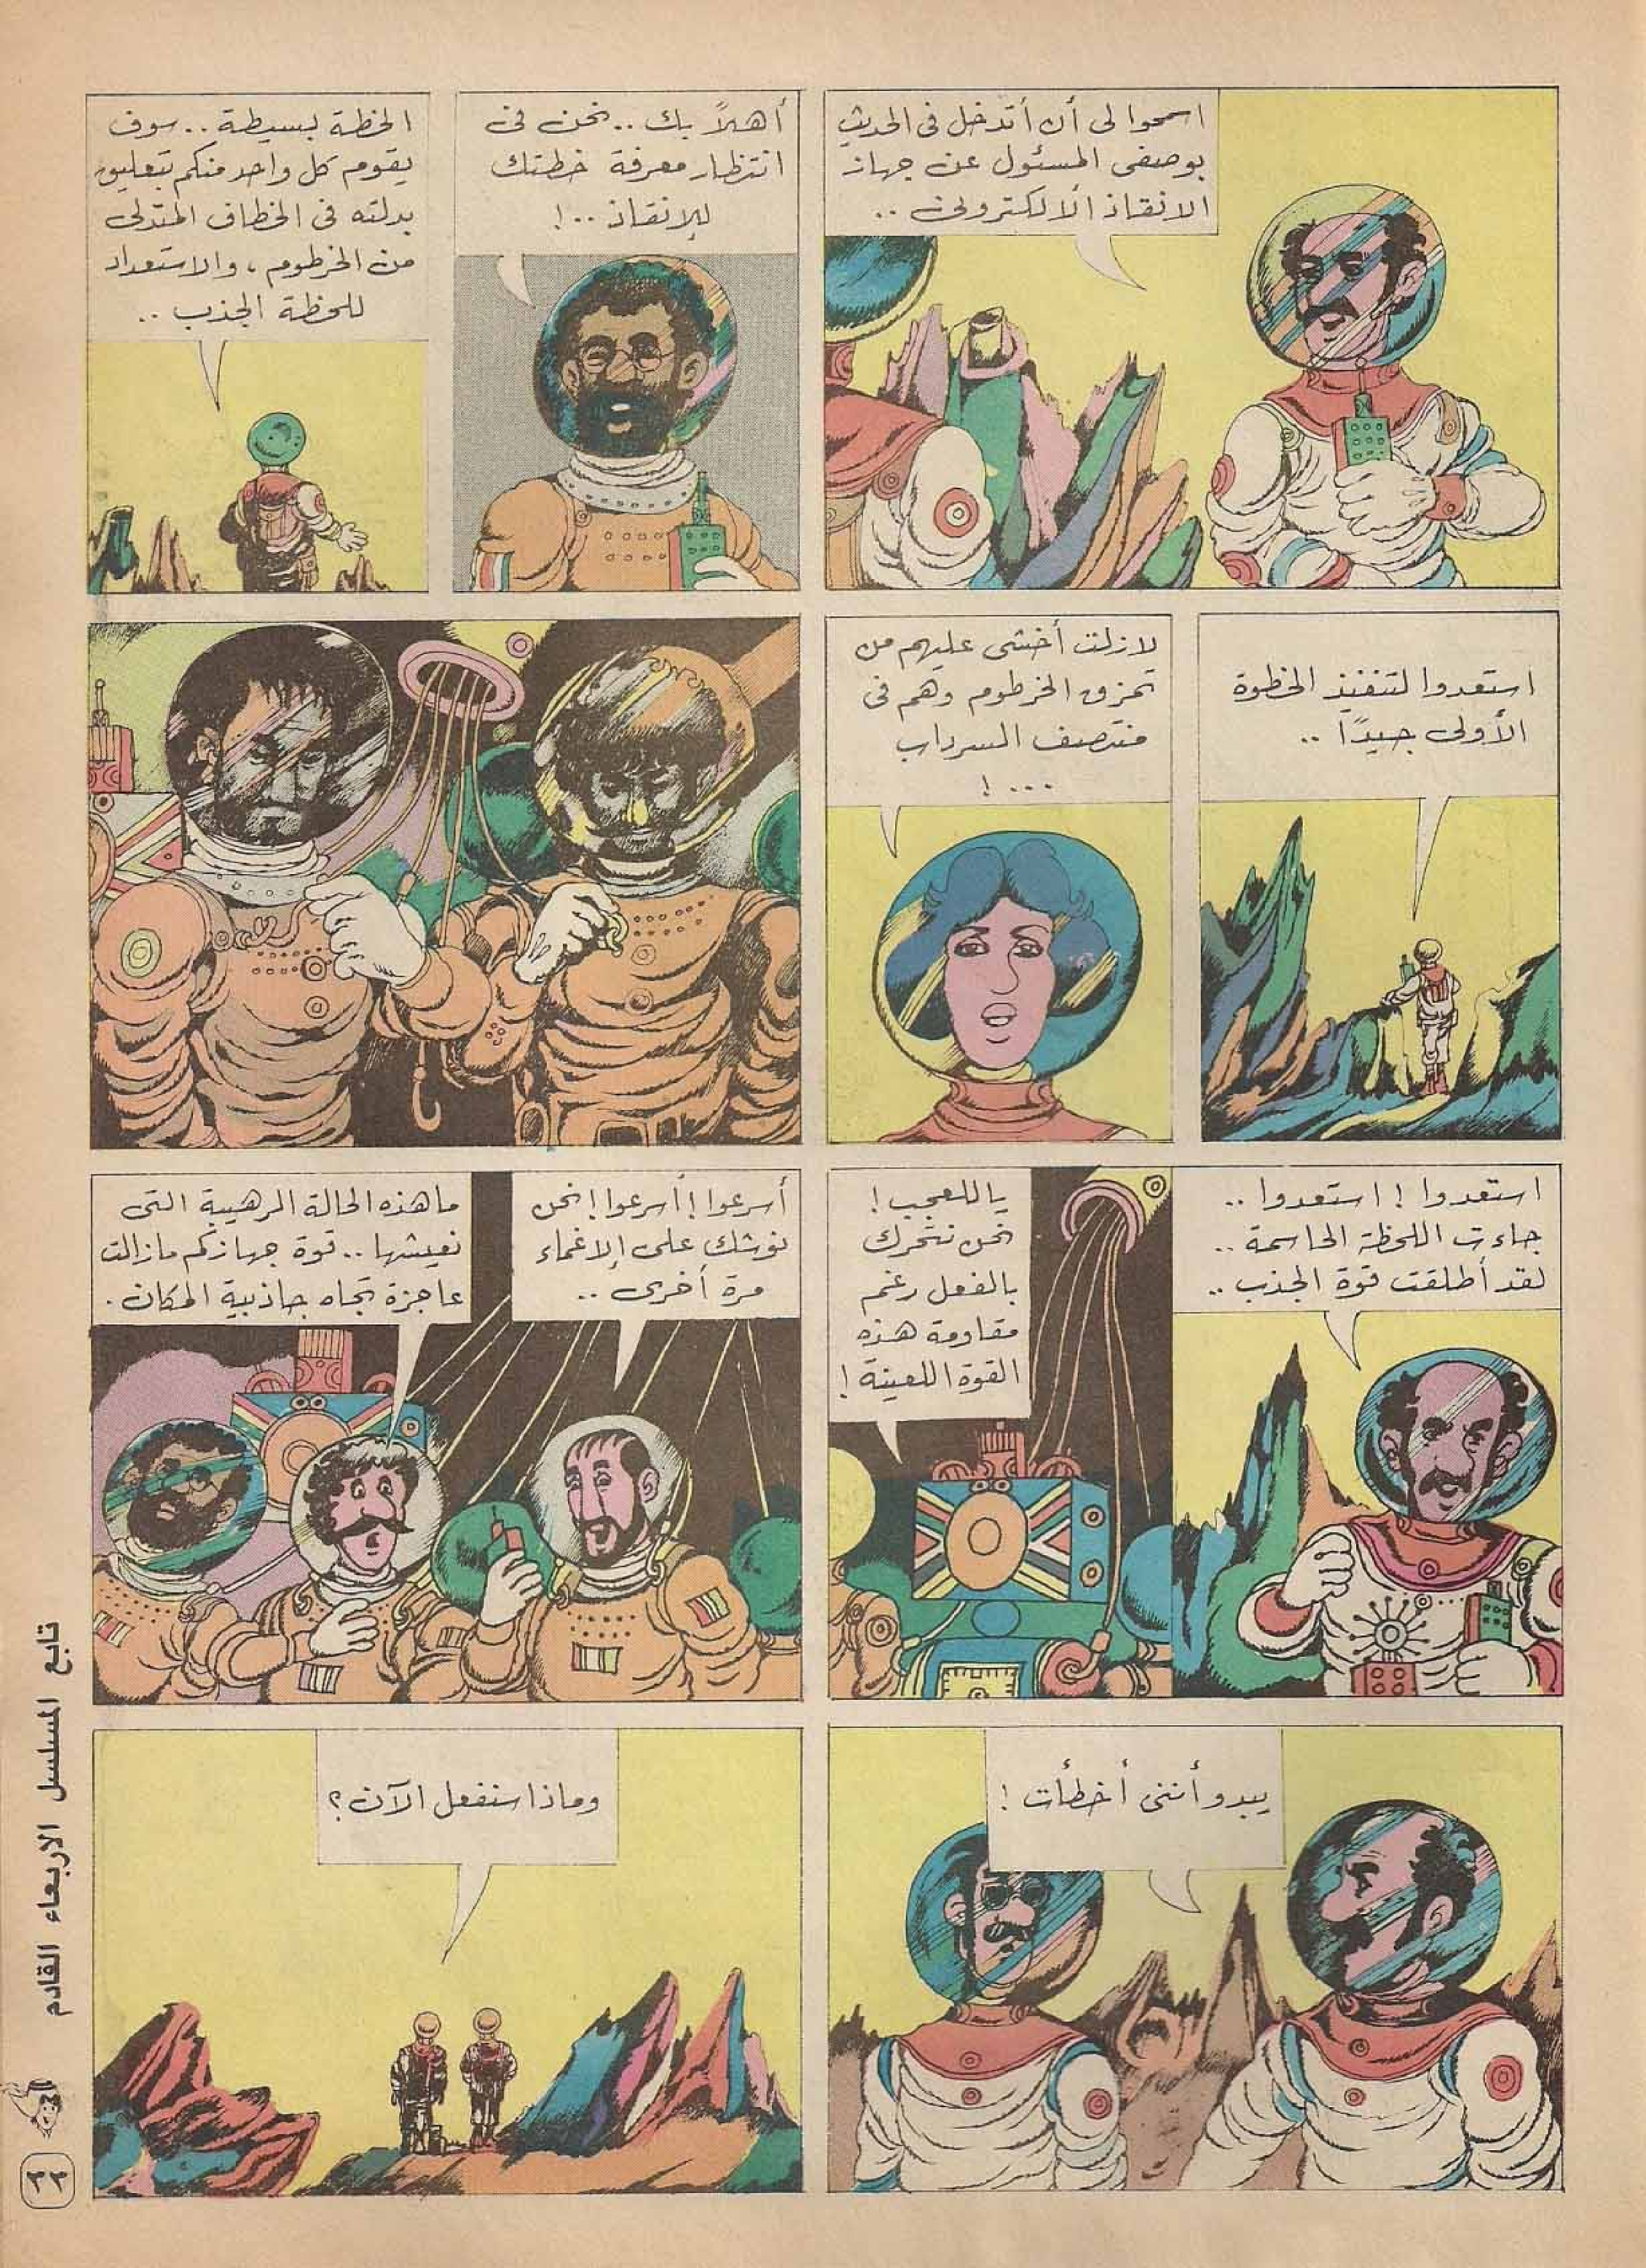 اسمحوا لى أن أتدخل فى الحديث
بوصفى المسئول عن جهاز
الانقاذ الالكترونى ..
أهلاً بك .. نحن فى
انتظار معرفة خطتك
للإنقاذ ..!
الخطة بسيطة .. سوف
يقوم كل واحد منكم بتعليق
بدلته فى الخطاف المتدلى
من الخرطوم ، والاستعداد
للحظة الجذب ..
استعدوا لتنفيذ الخطوة
الأولى جيدًا ..
لازلت أخشى عليهم من
تمزق الخرطوم وهم فى
منتصف السرداب
... !
استعدوا ! استعدوا ..
جاءت اللحظة الحاسمة ..
لقد أطلقت قوة الجذب ..
ياللعجب !
نحن نتحرك
بالفعل رغم
مقاومة هذه
القوة اللعينة !
أسرعوا ! أسرعوا ! نحن
نوشك على الإغماء
مرة أخرى ..
ما هذه الحالة الرهيبة التى
نعيشها .. قوة جهازكم مازالت
عاجزة تجاه جاذبية المكان .
يبدو أننى أخطأت !
وماذا سنفعل الآن ؟
تابع المسلسل الاربعاء القادم
٢٢